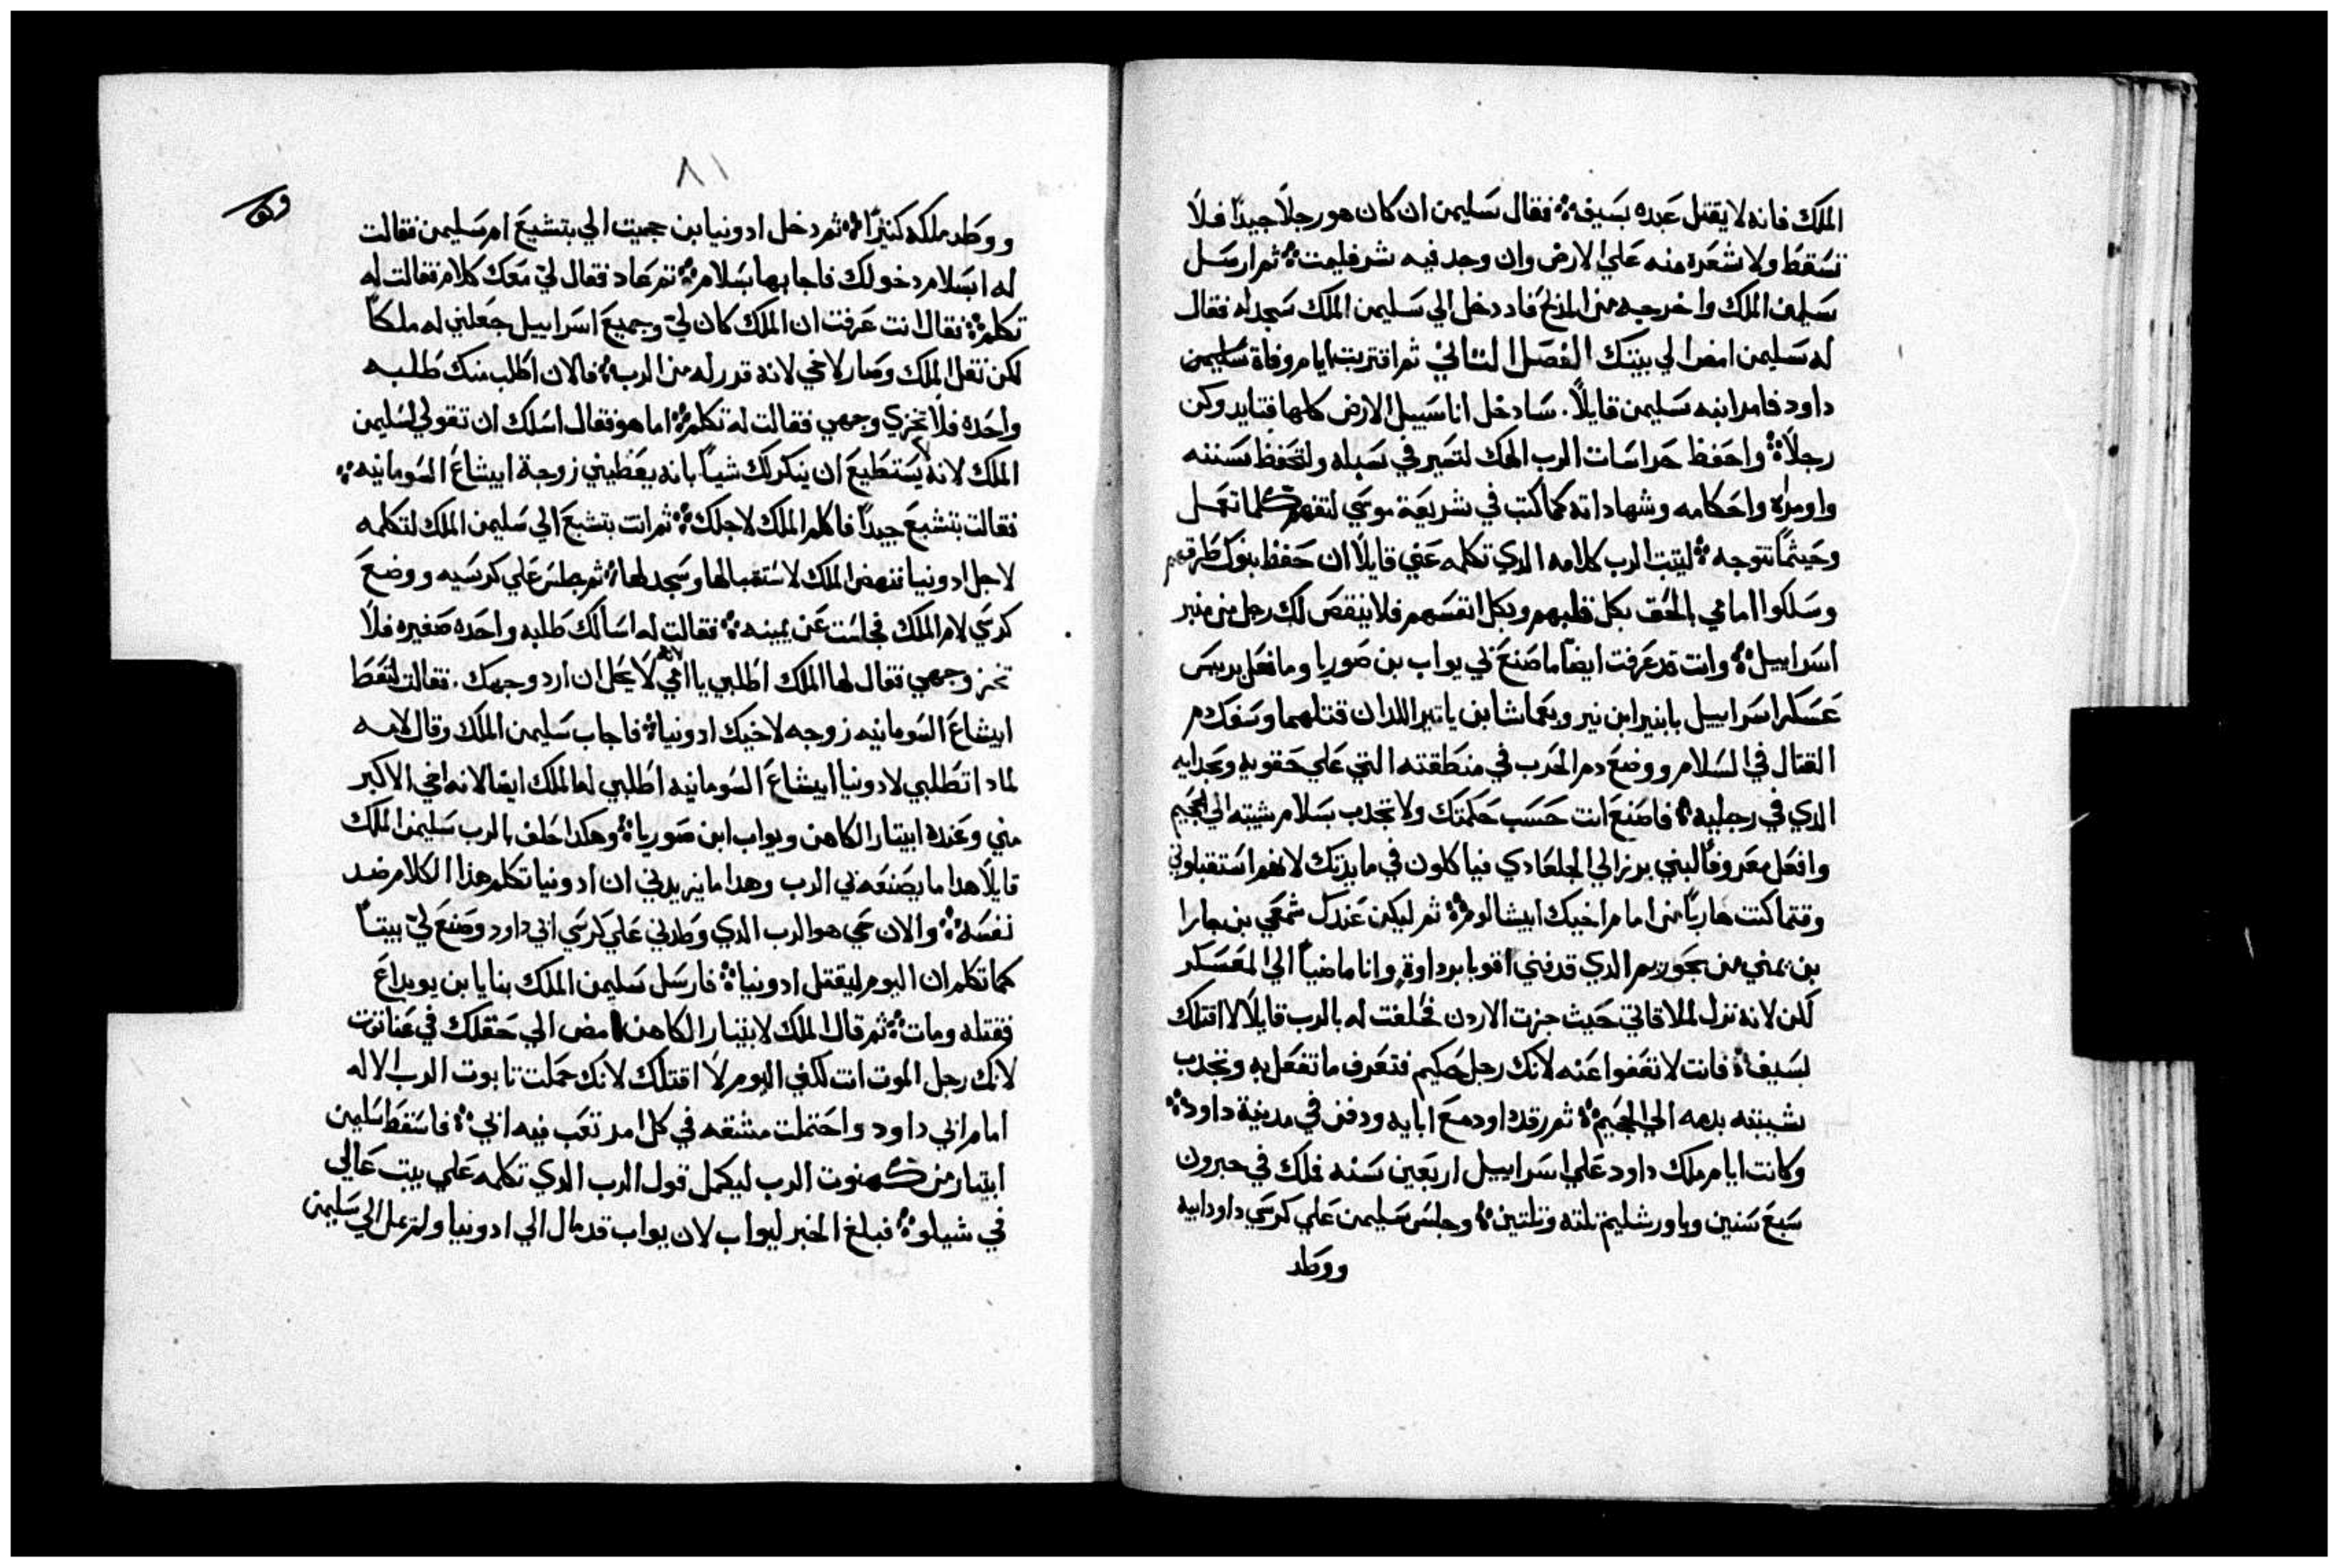 الملك فانه لا يقتل عبده بسيفه ۞ فقال سليمن ان كان هو رجلاً جيداً فلا
تسقط ولا شعرة منه علي الارض وان وجد فيه شر فليمت ۞ ثم ارسل
سليمن الملك واخرجه من المذبح فاد دخل الي سليمن الملك سجد له فقال
له سليمن امض الي بيتك الفصل الثاني ثم اقتربت ايام وفاة سليمن
داود فامر ابنه سليمن قايلاً. سادخل انا سبيل الارض كلها فتايد وكن
رجلاً ۞ واحفظ حراسات الرب الهك لتسير في سبله ولتحفظ سننه
واوامره واحكامه وشهاداته كما كتب في شريعة موسي لتفهم كلما تعمل
وحيثما تتوجه ۞ ليتبت الرب كلامه الدي تكلمه عني قايلاً ان حفظ بنوك طرقهم
وسلكوا امامي بالحق بكل قلبهم وبكل انفسهم فلا ينقص لك رجل من منبر
اسراييل ۞ وانت قد عرفت ايضاً ما صنع بي يواب بن صوريا وما فعل بريس
عسكر اسراييل بابنير ابن نير وبعماشا بن ياتير اللدان قتلهما وسفك دم
القتال في السلام ووضع دم الحرب في منطقته التي علي حقويه وبحدايه
الدي في رجليه ۞ فاصنع انت حسب حكمتك ولا تجدب بسلام شيبته الي الجحيم
وافعل معروفاً لبني برزالي الجلعادي فياكلون في مايدتك لانهم استقبلوني
وقتما كنت هارباً من امام اخيك ابيشالوم ۞ ثم ليكن عندك شمعي بن جارا
بن يمني من بحوريم الدي قدفني اقوابرداوة وانا ماضياً الي المعسكر
لكن لانه نزل لملاقاتي حيث جزت الاردن فحلفت له بالرب قايلاً لا اقتلك
بسيف ۞ فانت لا تعفوا عنه لانك رجل حكيم فتعرف ما تفعل به وتجدب
شيبته بدمه الي الجحيم ۞ ثم رقد داود مع ابايه ودفن في مدينة داود ۞
وكانت ايام ملك داود علي اسراييل اربعين سنه فملك في حبرون
سبع سنين وباورشليم تلته وتلتين ۞ وجلس سليمن علي كرسي داود ابيه
ووطد
٨١
ووطد ملكه كثيراً ۞ ثم دخل ادونيا بن حجيت الي بتشبع ام سليمن فقالت
له ابسلام دخولك فاجابها بسلام ۞ ثم عاد فقال لي معك كلام فقالت له
تكلم ۞ فقال انت عرفت ان الملك كان لي وجميع اسراييل جعلني له ملكاً
لكن نقل الملك وصار لاخي لانه قدر له من الرب ۞ فالان اطلب منك طلبه
واحده فلا تخزي وجهي فقالت له تكلم ۞ اما هو فقال اسلك ان تقولي لسليمن
الملك لانه لا يستطيع ان ينكر لك شياً بانه يعطيني زوجة ابيشاغ السومانيه ۞
فقالت بتشبع جيداً فاكلم الملك لاجلك ۞ ثم اتت بتشبع الي سليمن الملك لتكلمه
لاجل ادونيا فنهض الملك لاستقبالها وسجد لها ۞ ثم جلس علي كرسيه ووضع
كرسي لام الملك فجلست عن يمينه ۞ فقالت له اسالك طلبه واحده صغيره فلا
تخز وجهي فقال لها الملك اطلبي يا امي لانه لا يحل ان ارد وجهك. فقالت لتعط
ابيشاغ السومانيه زوجه لاخيك ادونيا ۞ فاجاب سليمن الملك وقال لامه
لمادا تطلبي لادونيا ابيشاغ السومانيه اطلبي له الملك ايضا لانه اخي الاكبر
مني وعنده ابيتار الكاهن ويواب ابن صوريا ۞ وهكدا حلف بالرب سليمن الملك
قايلاً هدا ما يصنعه بي الرب وهدا ما يزيدني ان ادونيا تكلم هذا الكلام ضد
نفسه ۞ والان حي هو الرب الدي وطدني علي كرسي ابي داود وصنع لي بيتاً
كما تكلم ان اليوم ليقتل ادونيا ۞ فارسل سليمن الملك بنايا بن يويداع
فقتله ومات ۞ ثم قال الملك لابيتار الكاهن امض الي حقلك في عناتوت
لانك رجل الموت انت لكني اليوم لا اقتلك لانك حملت تابوت الرب الاله
امام ابي داود واحتملت مشقه في كل امر تعب فيه ابي ۞ فاسقط سليمن
ابيتار من كهنوت الرب ليكمل قول الرب الدي تكلمه علي بيت عالي
في شيلو ۞ فبلغ الخبر ليواب لان يواب قد مال الي ادونيا ولم يمل الي سليمن